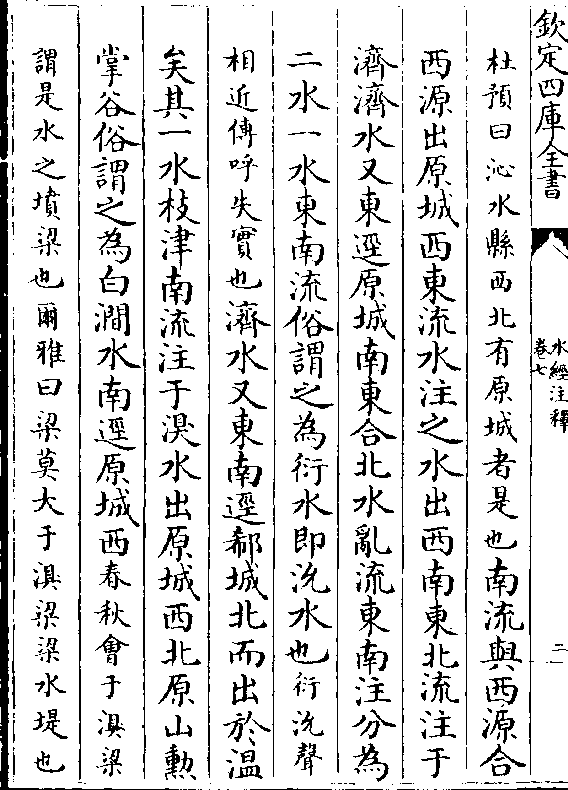 欽定四庫全書
水經注釋
卷七
二
杜預曰沁水縣西北有原城者是也南流與西源合
西源出原城西東流水注之水出西南東北流注于
濟濟水又東逕原城南東合北水亂流東南注分為
二水一水東南流俗謂之為衍水即沇水也衍沇聲
相近傳呼失實也濟水又東南逕郗城北而出於溫
矣其一水枝津南流注于湨水出原城西北原山勲
掌谷俗謂之為白澗水南逕原城西春秋會于湨梁
謂是水之墳梁也爾雅曰梁莫大于湨梁梁水堤也